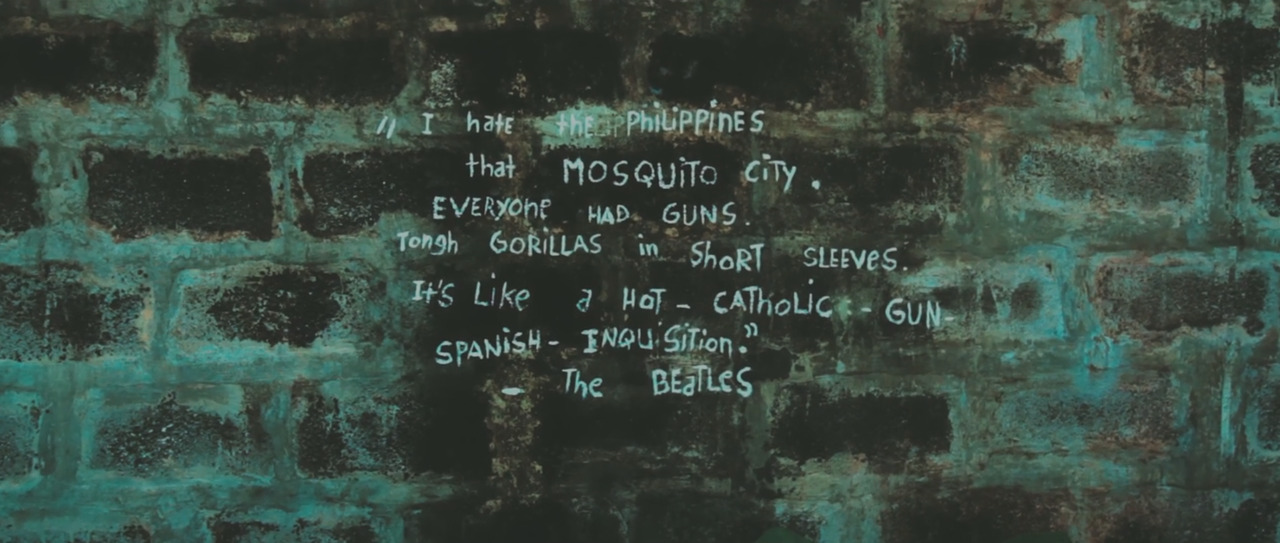 " I hate the PHiLiPPiNES
that MOSQUiTO CiTY.
EVERYONE HAD GUNS.
Tongh GORiLLAS in ShoRT SLEEVES.
It's Like a HOT - CATholiC - GUN-
SPANiSH - INQUiSiTion."
- The BEaTLES